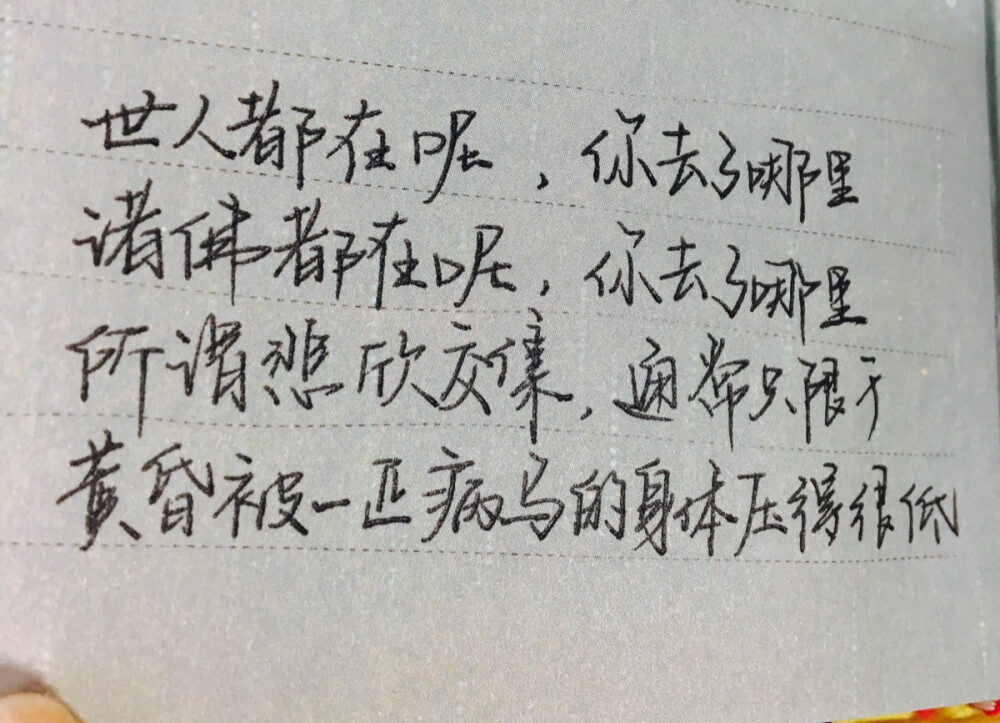 世人都在呢，你去了哪里
诸佛都在呢，你去了哪里
所谓悲欣交集，通常只限于
黄昏被一匹病马的身体压得很低